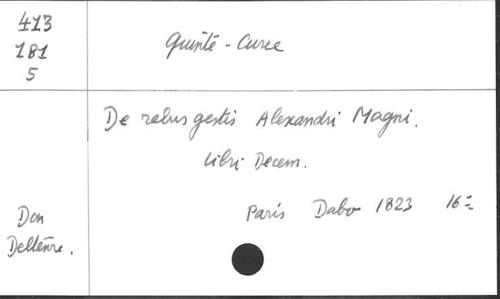 413
181
5
Quinte-Curce
De rebus gestis Alexandri Magni.
Libri Decem.
Paris Dabo 1823 16=
Don
Delteure.